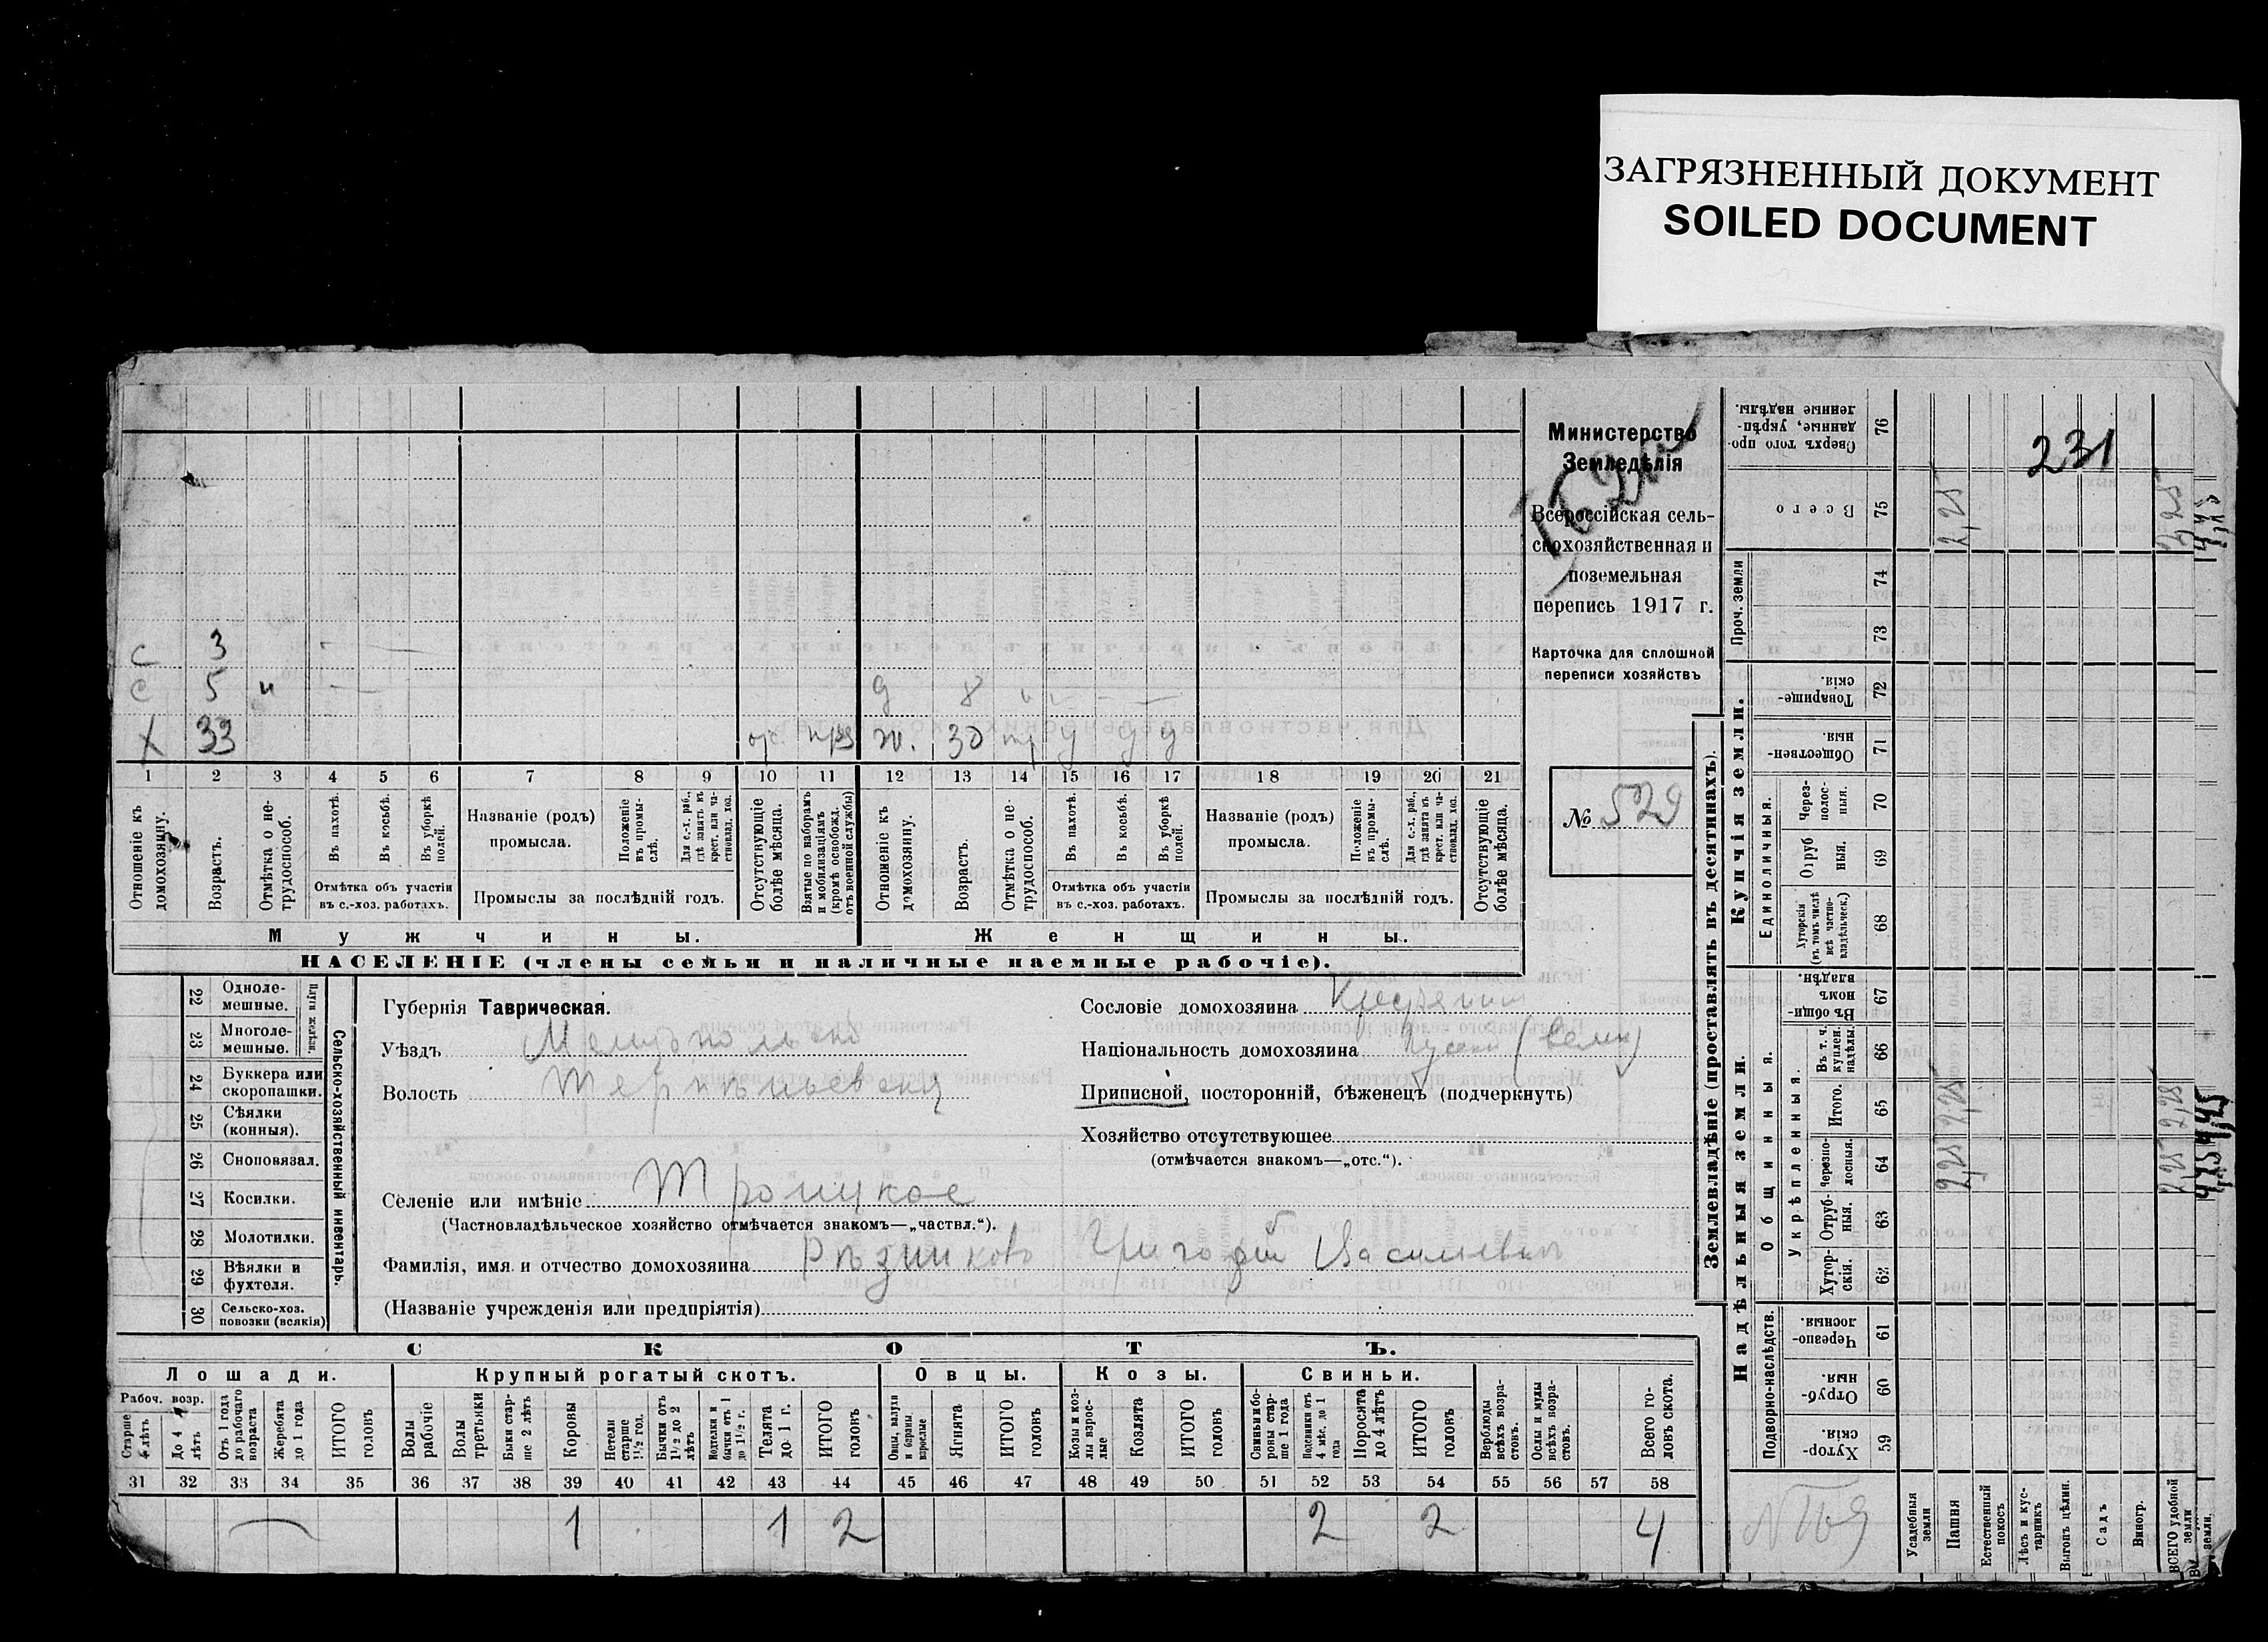 ЗАГРЯЗНЕННЫЙ ДОКУМЕНТ
SOILED DOCUMENT
Министерство
Земледѣлія
Всероссійская сель-
скохозяйственная и
поземельная
перепись 1917 г.
Карточка для сплошной
переписи хозяйствъ
№ 529
с 3
с 5 н д 8
х 33 ж. 30
1 2 3 4 5 6 7 8 9 10 11 12 13 14 15 16 17 18 19 20 21
Отношеніе къ домохозяину.
Возрастъ.
Отмѣтка о не-трудоспособ.
Въ пахотѣ.
Въ косьбѣ.
Въ уборкѣ полей.
Отмѣтка объ участіи
въ с.-хоз. работахъ.
Названіе (родъ)
промысла.
Положеніе въ промы-слѣ.
Для с.-х. раб., гдѣ занятъ въ крест. или ча-стновлад. хоз.
Промыслы за послѣдній годъ.
Отсутствующіе болѣе мѣсяца.
Взятые по наборамъ и мобилизаціямъ (кромѣ освобожд. отъ военной службы)
Отношеніе къ домохозяину.
Возрастъ.
Отмѣтка о не-трудоспособ.
Въ пахотѣ.
Въ косьбѣ.
Въ уборкѣ полей.
Отмѣтка объ участіи
въ с.-хоз. работахъ.
Названіе (родъ)
промысла.
Положеніе въ промы-слѣ.
Для с.-х. раб., гдѣ занята въ крест. или ча-стновлад. хоз.
Промыслы за послѣдній годъ.
Отсутствующіе болѣе мѣсяца.
Мужчины. Женщины.
НАСЕЛЕНІЕ (члены семьи и наличные наемные рабочіе).
Сельско-хозяйственный инвентарь.
22 Одноле-мешные.
23 Многоле-мешные.
24 Буккера или скоропашки.
25 Сѣялки (конныя).
26 Сноповязал.
27 Косилки.
28 Молотилки.
29 Вѣялки и фухтеля.
30 Сельско-хоз. повозки (всякія)
Губернія Таврическая.
Уѣздъ
Волость
Селеніе или имѣніе Троицкое
(Частновладѣльческое хозяйство отмѣчается знакомъ—„частвл.“).
Фамилія, имя и отчество домохозяина Рѣзниковъ Григорій Васильевичъ
(Названіе учрежденія или предпріятія)
Сословіе домохозяина
Національность домохозяина
Приписной, посторонній, бѣженецъ (подчеркнуть)
Хозяйство отсутствующее
(отмѣчается знакомъ—„отс.“).
СКОТЪ.
Лошади. Крупный рогатый скотъ. Овцы. Козы. Свиньи.
Рабоч. возр.
Старше 4 лѣтъ
До 4 лѣтъ
Отъ 1 года до рабочаго возраста
Жеребята до 1 года
ИТОГО головъ
Волы рабочіе
Волы третьяки
Быки стар-ше 2 лѣтъ
Коровы
Нетели старше 1½ год.
Бычки отъ 1½ до 2 лѣтъ
Подтелки и бычки отъ 1 до 1½ г.
Телята до 1 г.
ИТОГО головъ
Овцы, валухи и бараны взрослые
Ягнята
ИТОГО головъ
Козы и коз-лы взрос-лые
Козлята
ИТОГО головъ
Свиньи и бо-ровы стар-ше 1 года
Подсвинки отъ 4 мѣс. до 1 года
Поросята до 4 лѣтъ
ИТОГО головъ
Верблюды всѣхъ возра-стовъ.
Ослы и мулы всѣхъ возра-стовъ.
Всего го-ловъ скота.
31 32 33 34 35 36 37 38 39 40 41 42 43 44 45 46 47 48 49 50 51 52 53 54 55 56 57 58
1 1 2 2 2 4
Землевладѣніе (проставлять въ десятинахъ).
Надѣльныя земли. Купчія земли.
Проч. земли
Подворно-наслѣдств.
Общинныя.
Укрѣпленныя.
Единоличныя.
Сверхъ того про-данные, укрѣп-ленные надѣлы. 76
Всего 75
74
73
Товарище-скія. 72
Обществен-ныя. 71
Через-полос-ныя. 70
Отруб-ныя. 69
Хуторскія (въ томъ числѣ всѣ частно-владѣльческ.) 68
Въ общин-номъ владѣн. 67
Въ т. ч. куплен. надѣлы. 66
Итого. 65
Черезпо-лосныя. 64
Отруб-ныя. 63
Хутор-скія. 62
Черезпо-лосныя 61
Отруб-ныя. 60
Хутор-скія. 59
231
2,25
2,25
2,25
2,25
2,25
Усадебныя земли
Пашня
Естественный покосъ
Лѣсъ и кус-тарникъ
Выгонъ цѣлин.
Садъ
Виногр.
ВСЕГО удобной земли